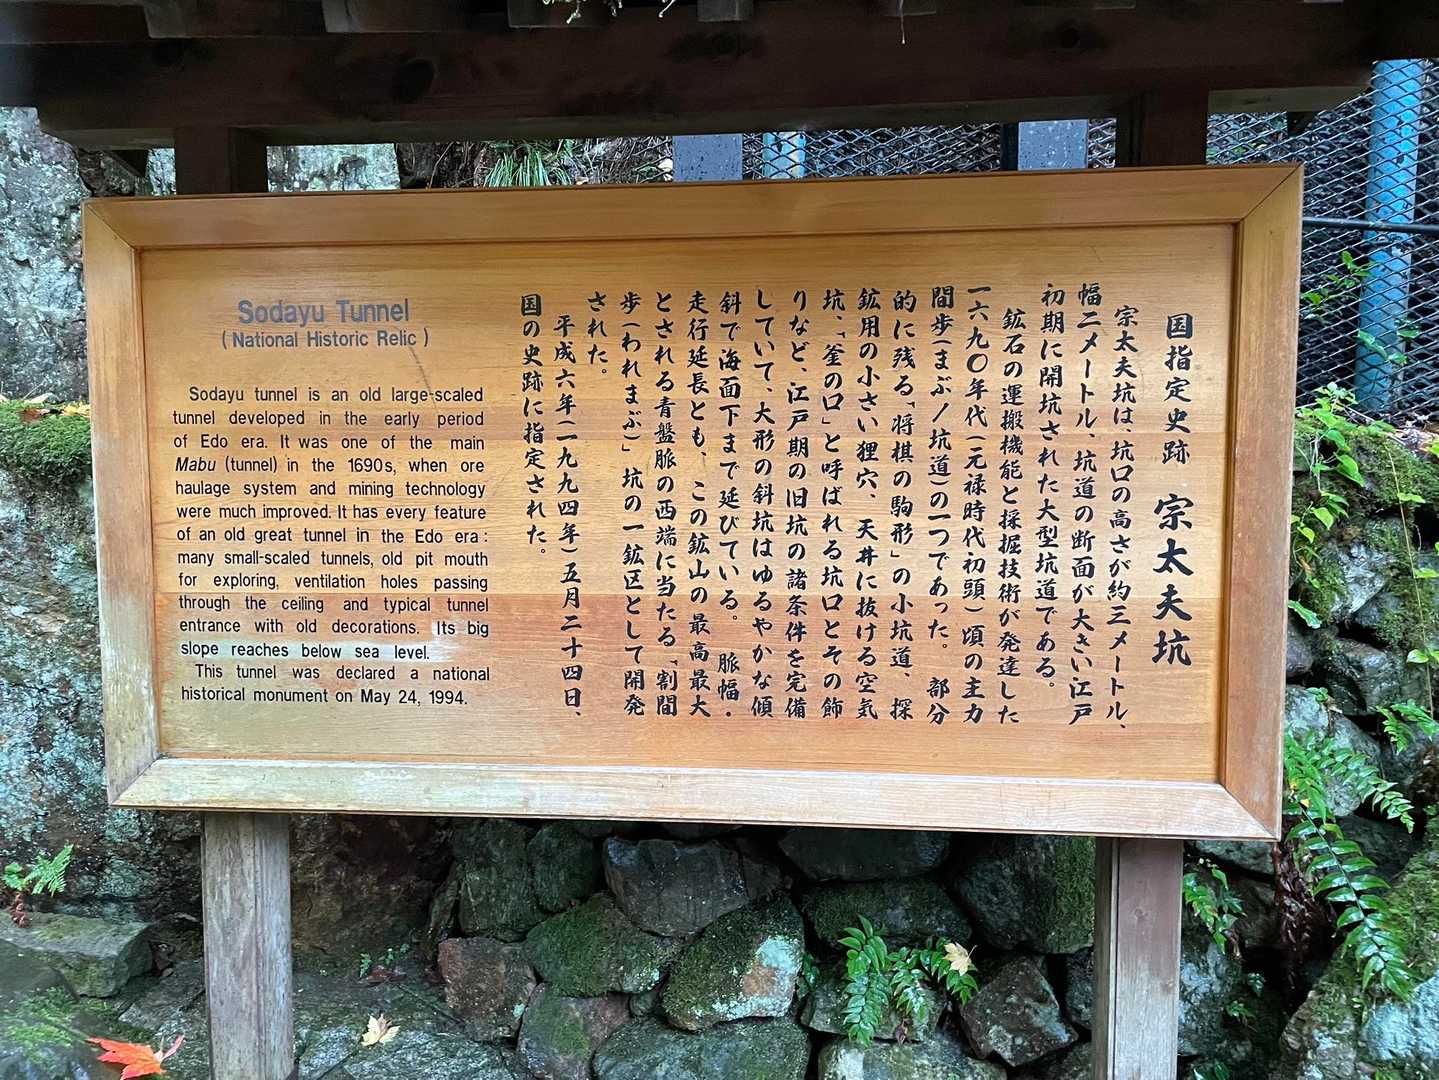 国指定史跡 宗太夫坑
宗太夫坑は、坑口の高さが約三メートル、
幅二メートル、坑道の断面が大きい江戸
初期に開坑された大型坑道である。
鉱石の運搬機能と採掘技術が発達した
一六九〇年代(元禄時代初頭)頃の主力
間歩(まぶ/坑道)の一つであった。 部分
的に残る「将棋の駒形」の小坑道、探
鉱用の小さい狸穴、天井に抜ける空気
坑、「釜の口」と呼ばれる坑口とその飾
りなど、江戸期の旧坑の諸条件を完備
していて、大形の斜坑はゆるやかな傾
斜で海面下まで延びている。 脈幅・
走行延長とも、この鉱山の最高最大
とされる青盤脈の西端に当たる「割間
歩(われまぶ)」坑の一鉱区として開発
された。
平成六年(一九九四年)五月二十四日、
国の史跡に指定された。
Sodayu Tunnel
( National Historic Relic )
Sodayu tunnel is an old large-scaled
tunnel developed in the early period
of Edo era. It was one of the main
Mabu (tunnel) in the 1690s, when ore
haulage system and mining technology
were much improved. It has every feature
of an old great tunnel in the Edo era :
many small-scaled tunnels, old pit mouth
for exploring, ventilation holes passing
through the ceiling and typical tunnel
entrance with old decorations. Its big
slope reaches below sea level.
This tunnel was declared a national
historical monument on May 24, 1994.